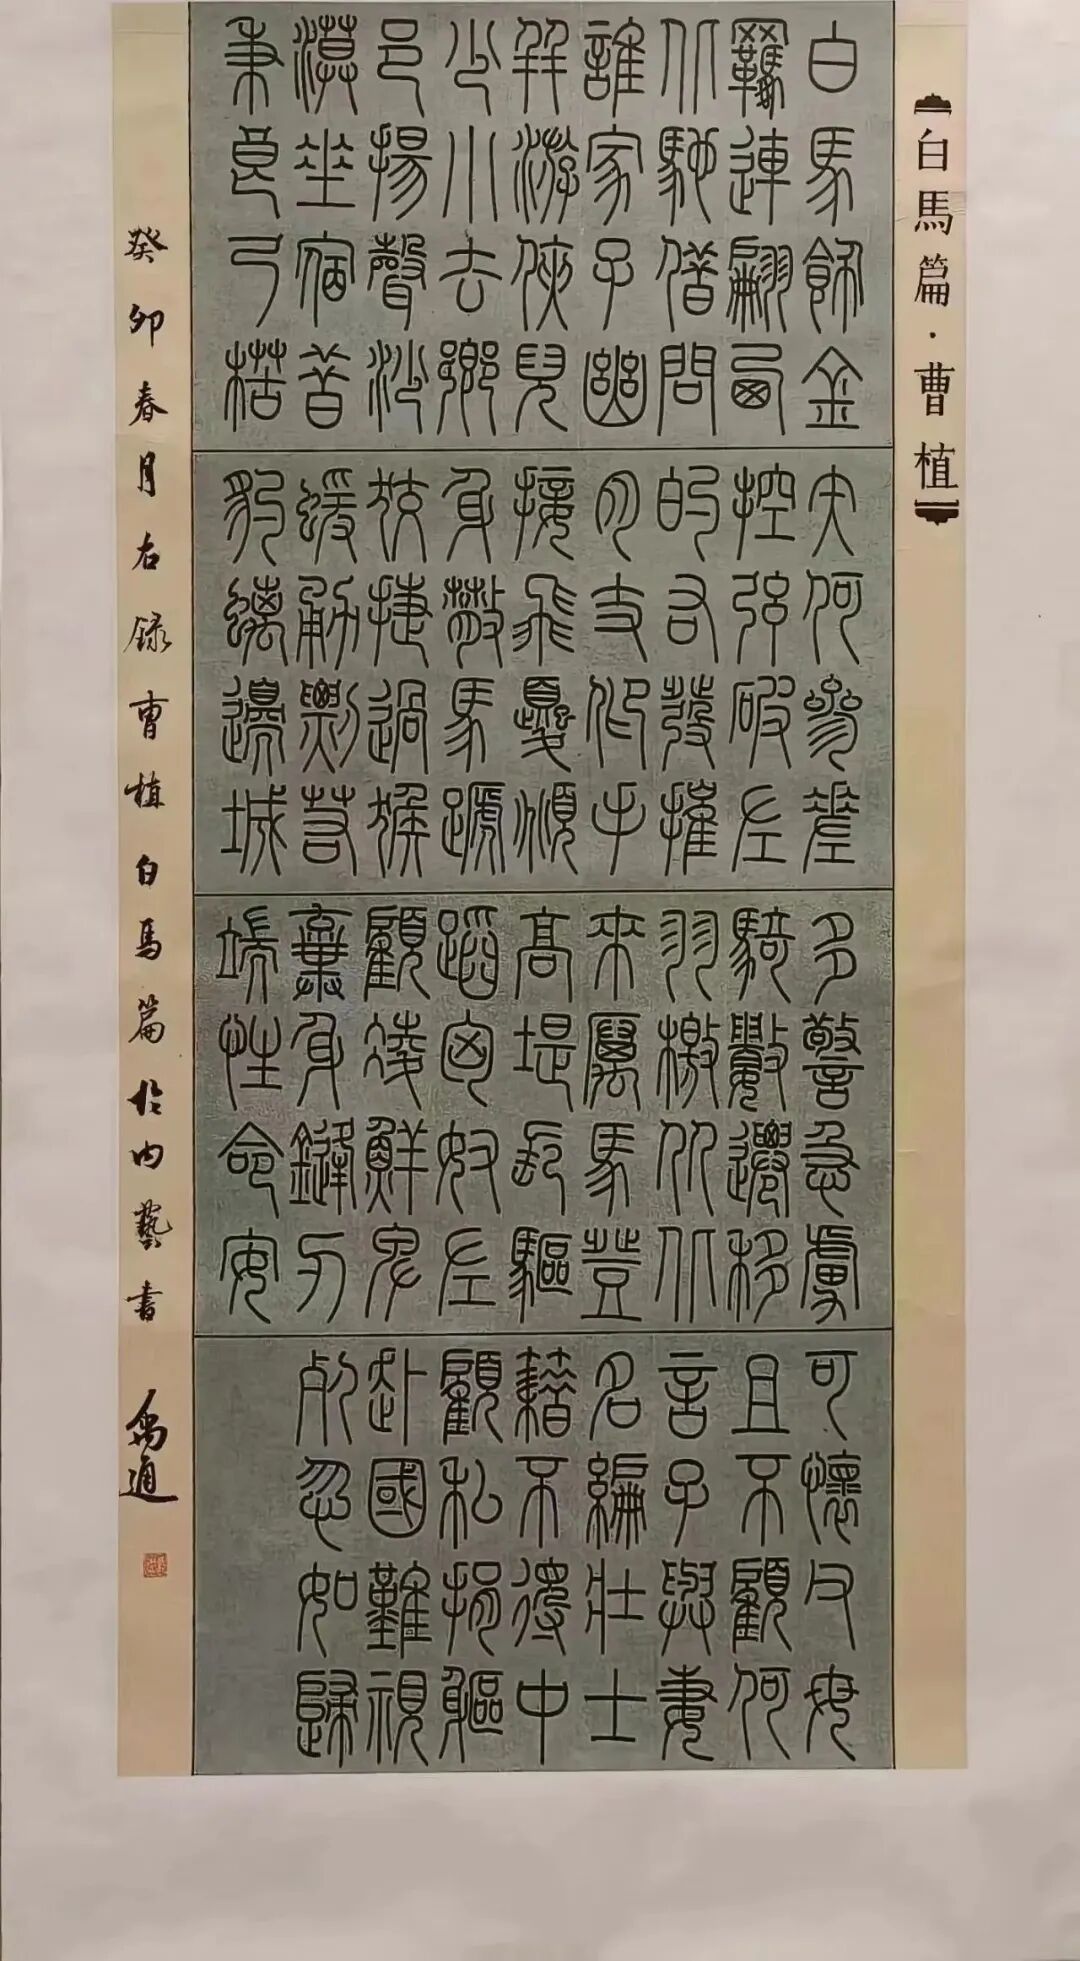 白馬篇·曹植
白馬飾金
羈連翩西
北馳借問
誰家子幽
并游俠兒
少小去鄉
邑揚聲沙
漠垂宿昔
秉良弓楛
矢何參差
控弦破左
的右發摧
月支仰手
接飛猱俯
身散馬蹄
狡捷過猴
蝯勇剽若
豹螭邊城
多警急虜
騎數遷移
羽檄从北
來厲馬登
高堤長驅
蹈匈奴左
顧凌鮮卑
棄身鋒刃
端性命安
可懷父母
且不顧何
言子與妻
名編壯士
籍不得中
顧私捐軀
赴國難視
死忽如歸
癸卯春月右錄曹植白馬篇於內藝書 禹通